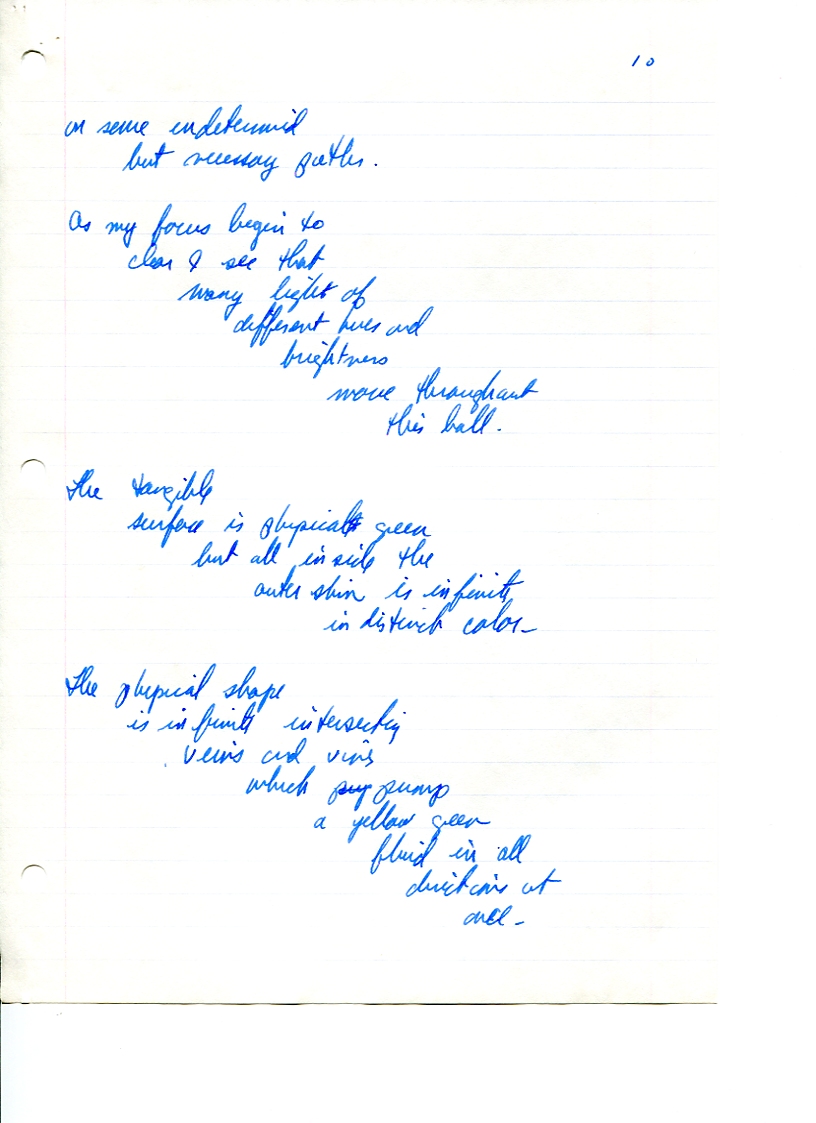 10
on some indetermid
but necessay paths.
As my focus begin to
clear I see that
many light of
different hues and
brightness
move throughout
this ball.
The tangible
surface is physical green
but all inside the
outer skin is infinite
indistinct color-
The physical shape
is infinite intersecting
veins and vins
which pump
a yellow green
fluid in all
directions at
once-